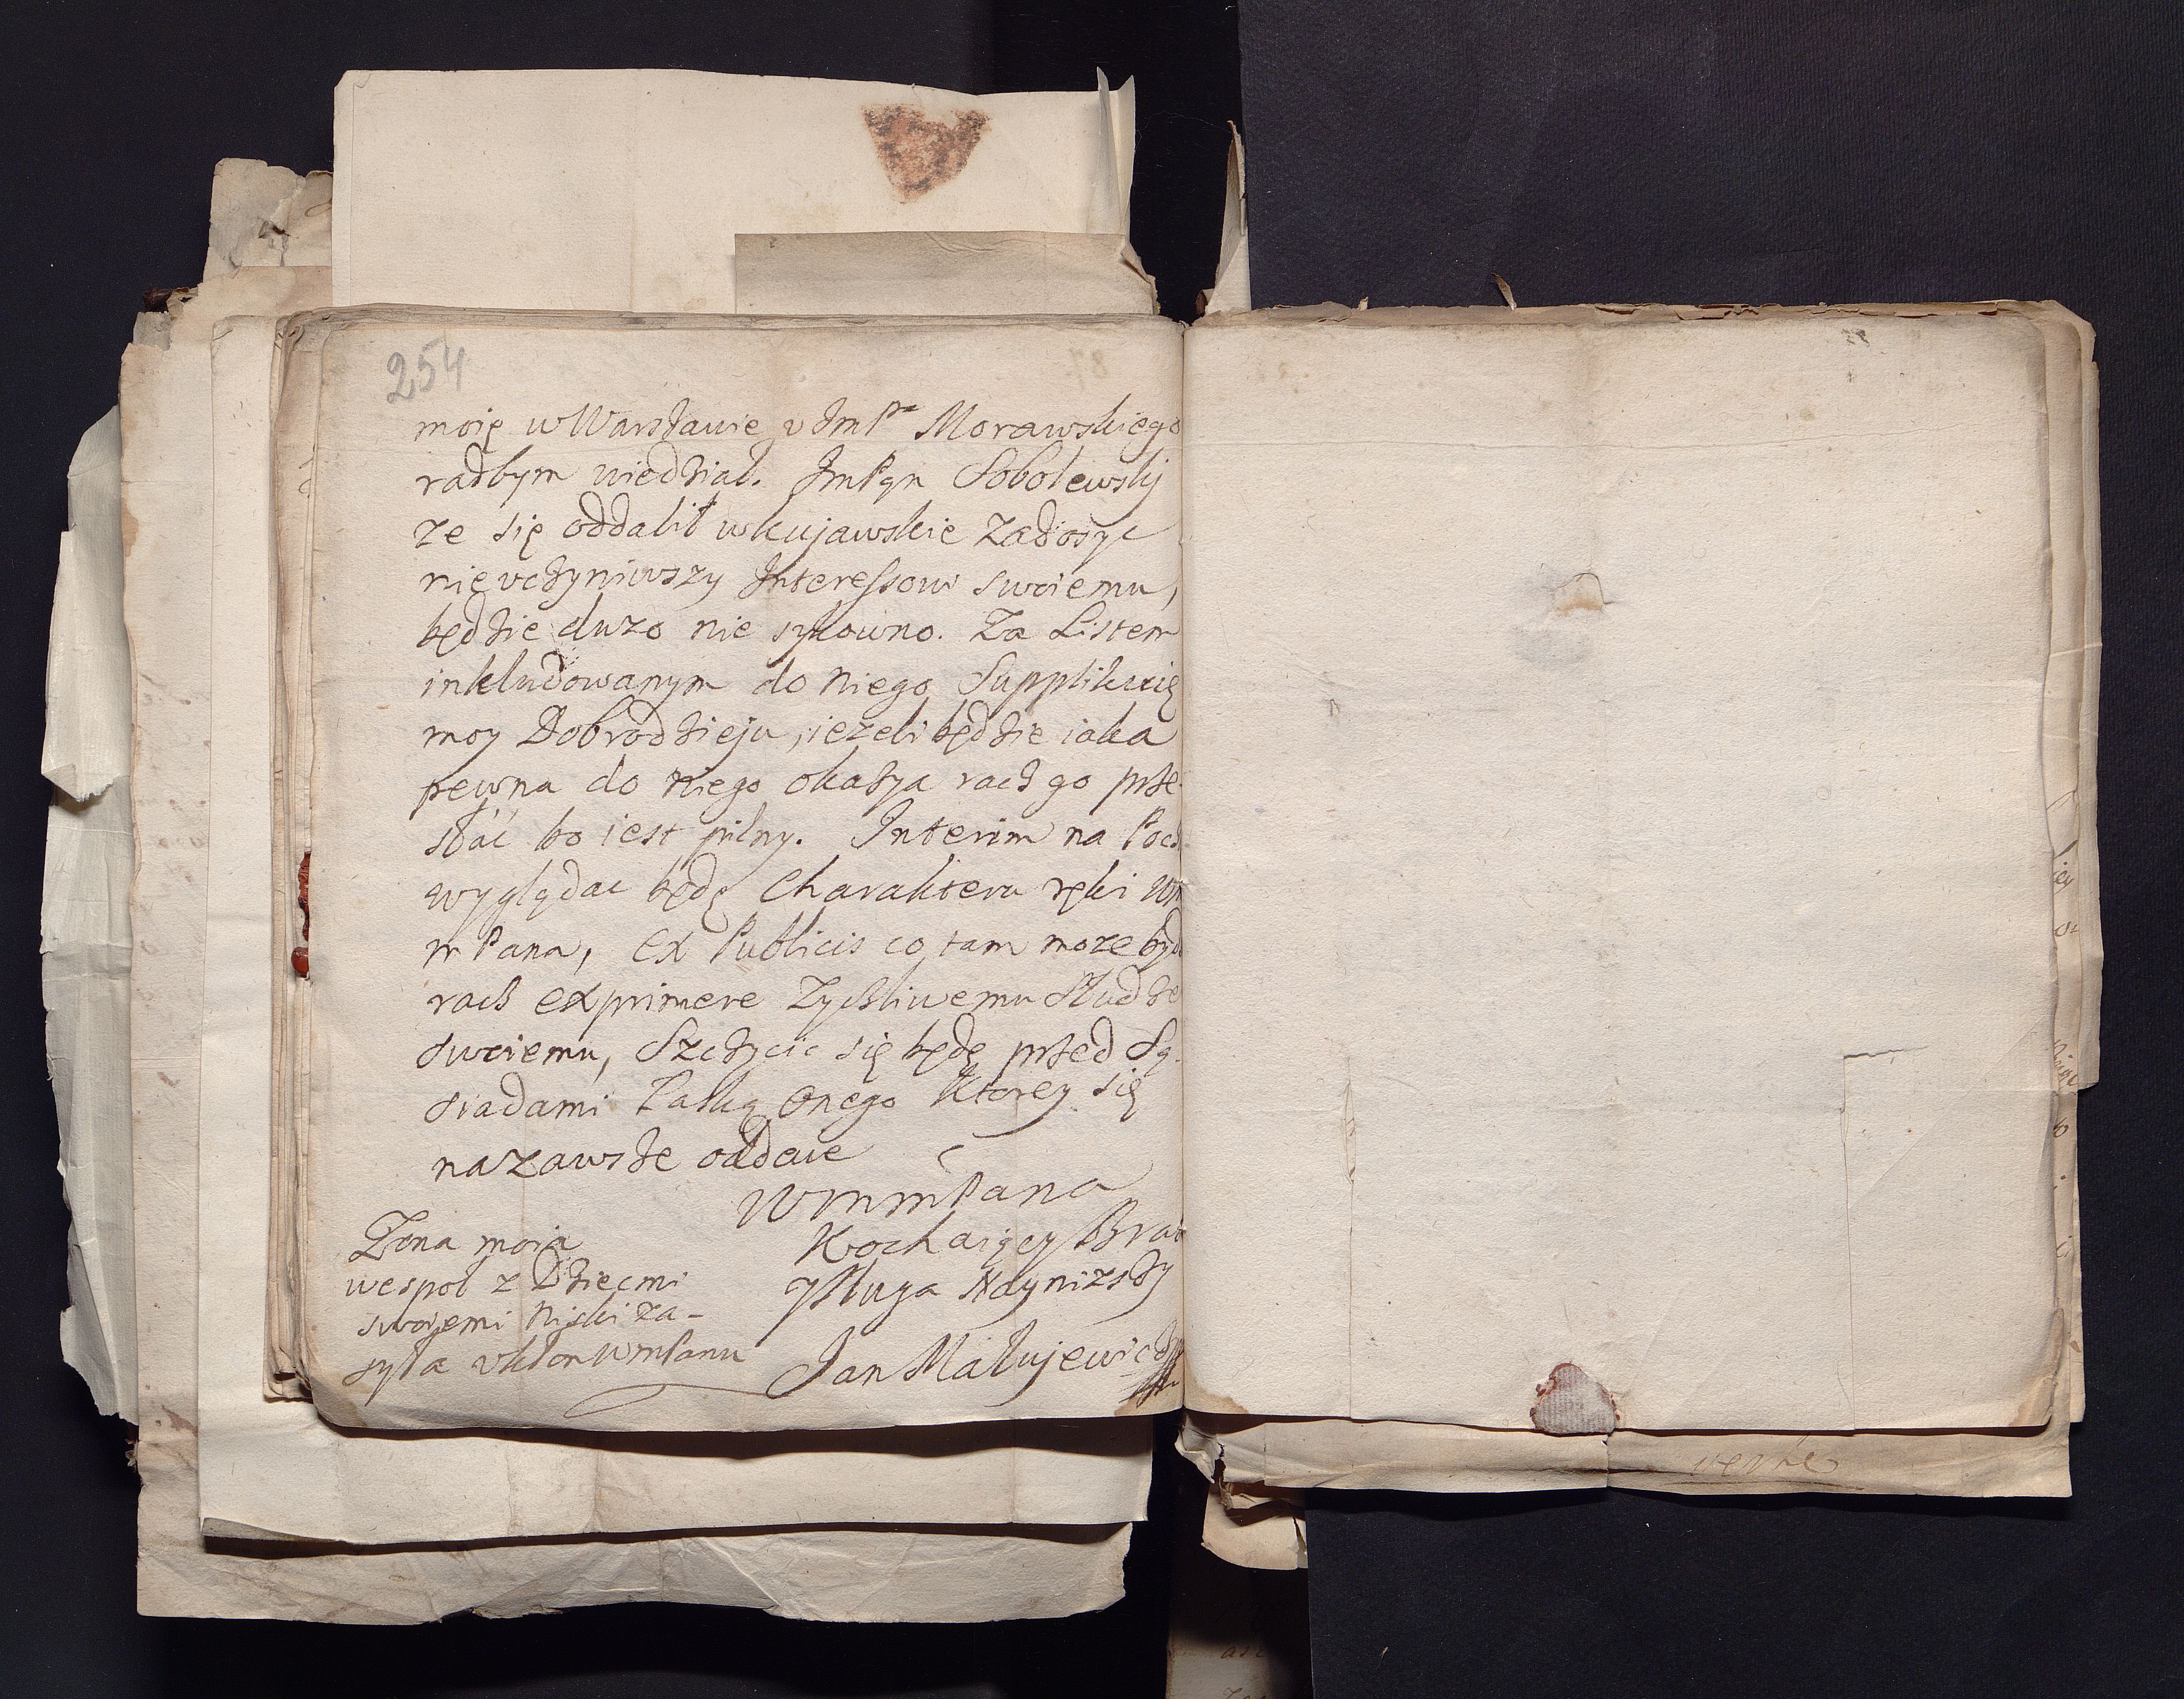 254
moię w Warszawie v Jmpa Morawskiego
radbym wiedział. JmPan Sobolewskj
ze się oddalił w kujawskie zadosyc
nie vczyniwszy Interessow swoiemu,
będzie duzo nie sykowno. Za Listem
inkludowanym do niego Supplikuię
moy Dobrodzieju, iezeli będzie iaka
pewna do niego okazya racz go prze-
słać bo iest pilny. Interim na Pocz
wyglądac będę Charakteru ręki Wm
m Pana, ex Publicis co tam moze byd
racz exprimere Zyczliwemu Słudze
swoiemu, Szczycic się będę przed Są-
siadami Łaską Onego Ktorey się
na zawsze oddaie
WmmPana
Kochaiący Brat
y Sługa Nayniższy
Jan Małujewicz
Zona moia
wespoł z Dziecmi
swoiemi Niski za-
syła vkłon WmPanu
verte